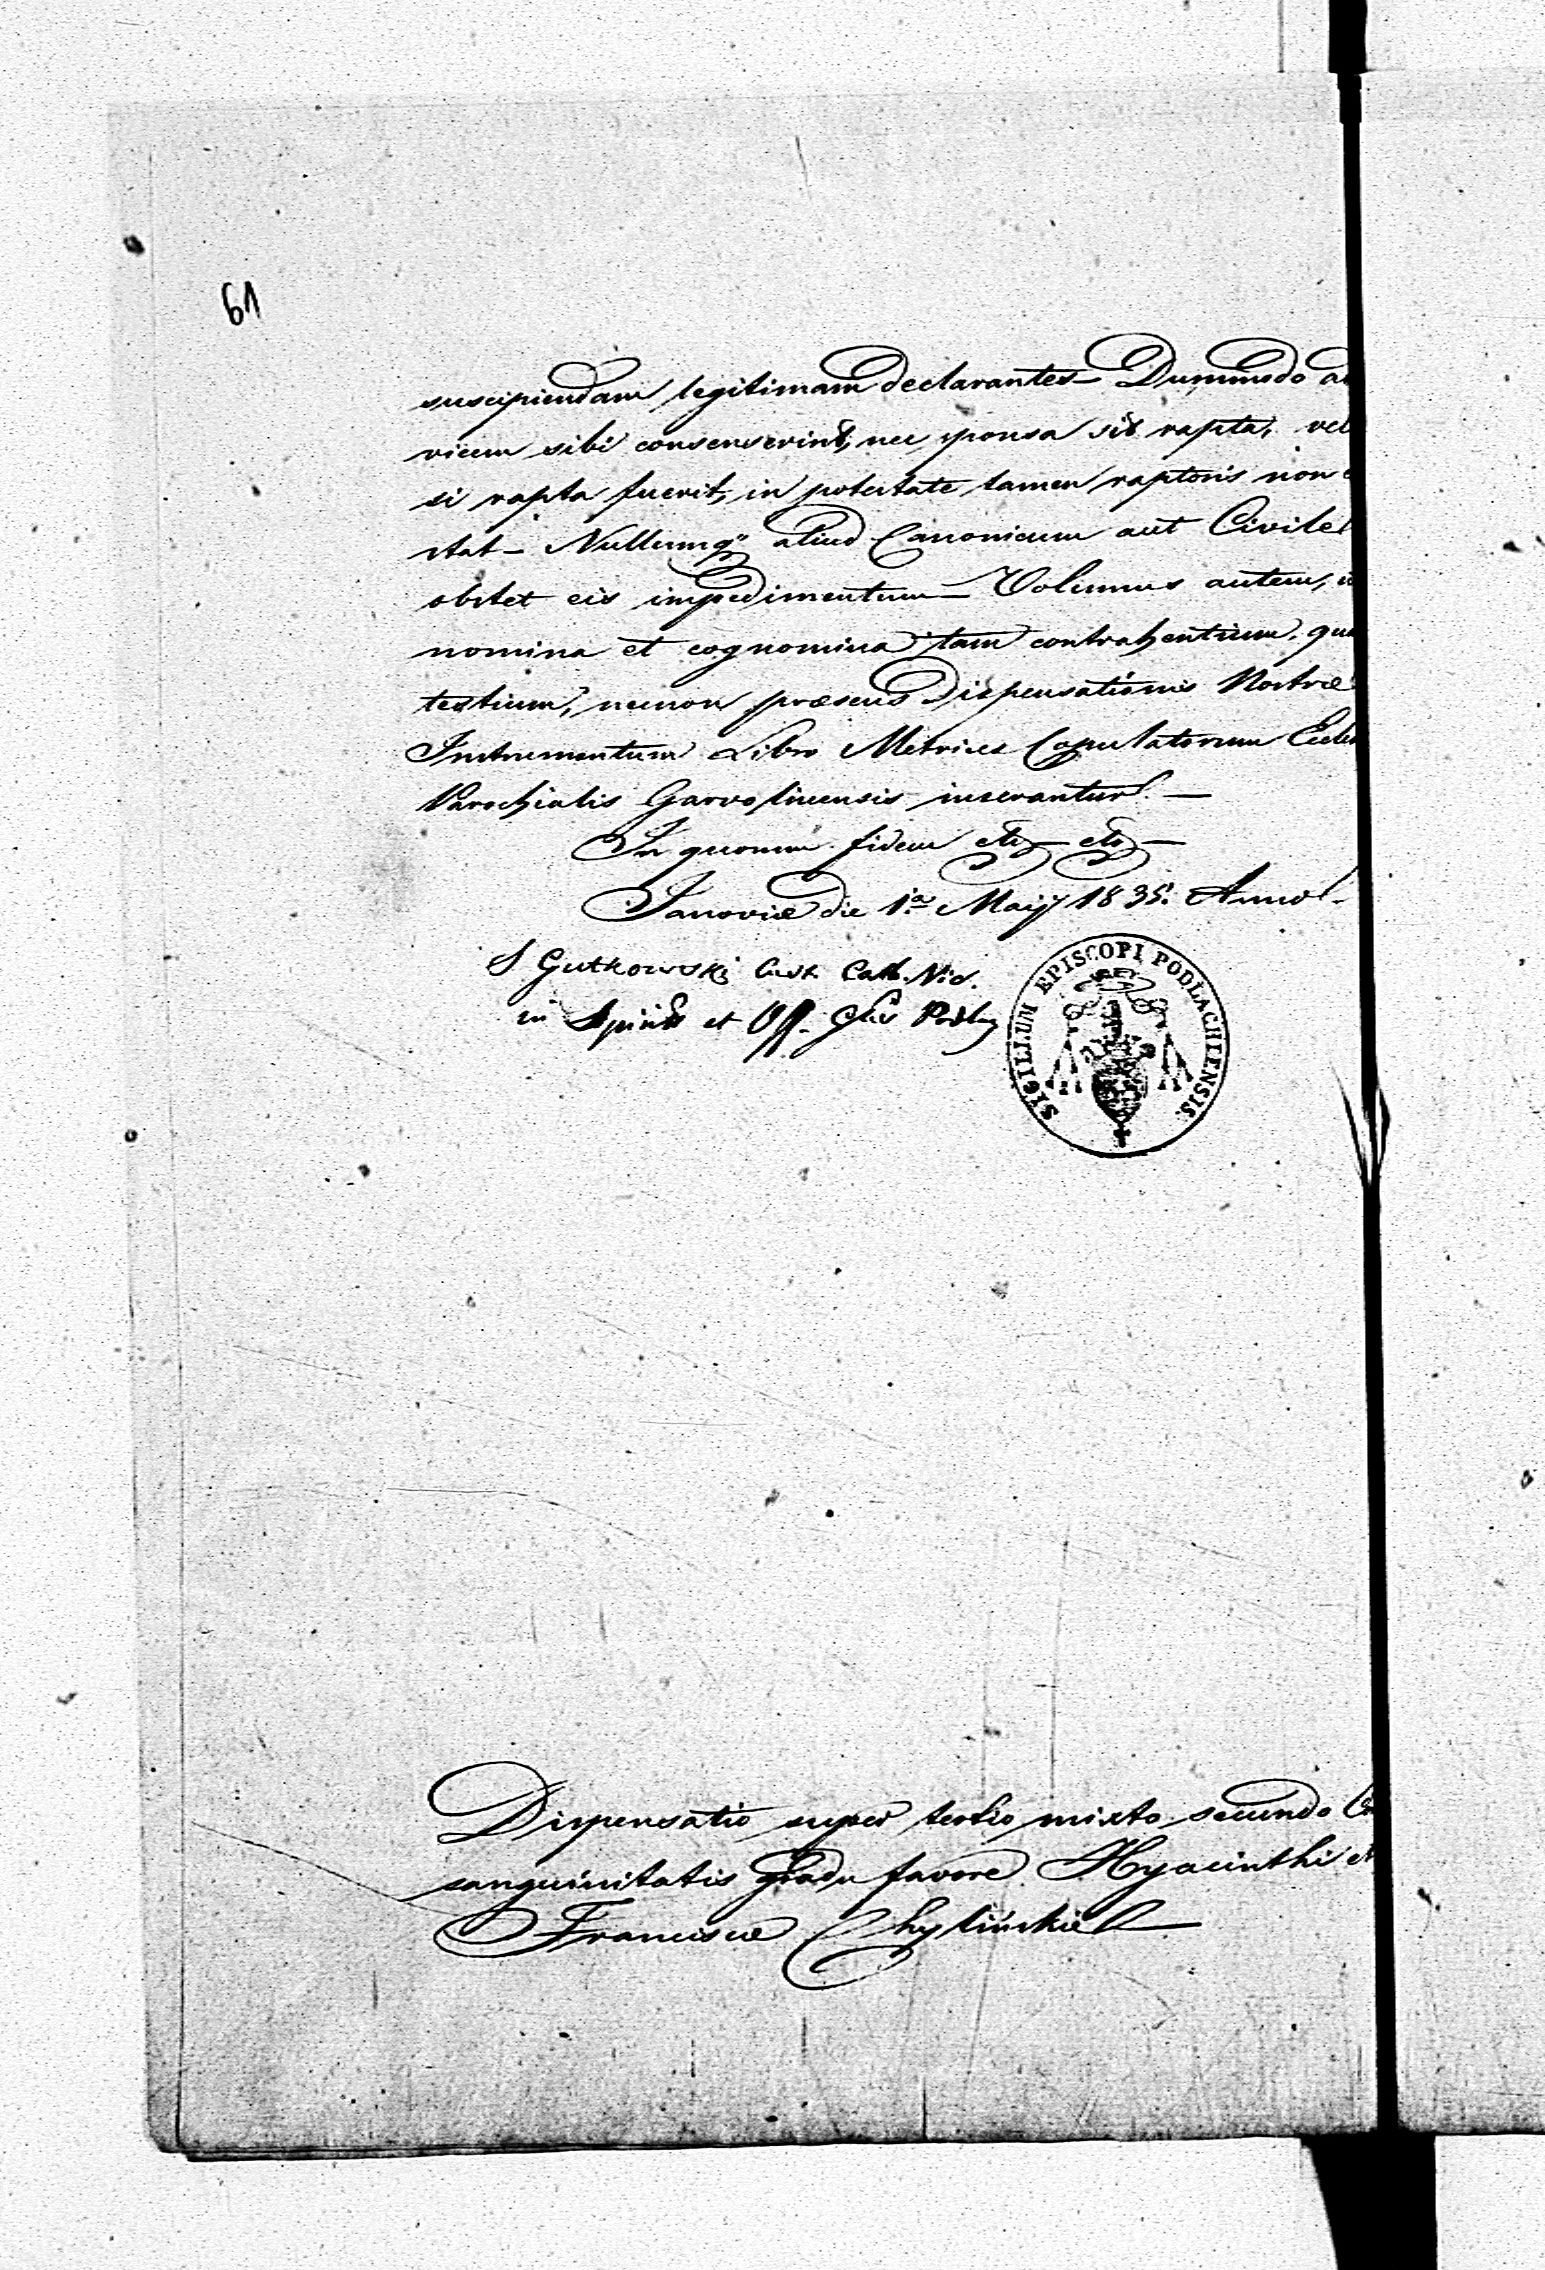 61
suscipiendam legitimam declarantes – Dummodo ad
vicem sibi consenserint, nec sponsa sit rapta, vel
si rapta fuerit, in potestate tamen raptoris non
stat – Nullumq" aliud Canonicum aut Civile
obstet eis impedimentum – Volumus autem,
nomina et cognomina tam contrahentium, qua
testium, necnon præsens Dispensationis Nostræ
Instrumentum Libro Metrices Copulatorum Eccles
Parochialis Garvolinensis inserantur. –
In quorum fidem etc – etc –
Janoviæ die 1.a Maij 1835. Anno. –
S Gutkowski Cust. Cath. Vic.
in Spirit et Off. Glis Podlą
SIGILLUM EPISCOPI PODLACHIENSIS.
Dispensatio super tertio mixto secundo Con
sanguinitatis gradu favore Hyacinthi et
Franciscæ Chylińskie –